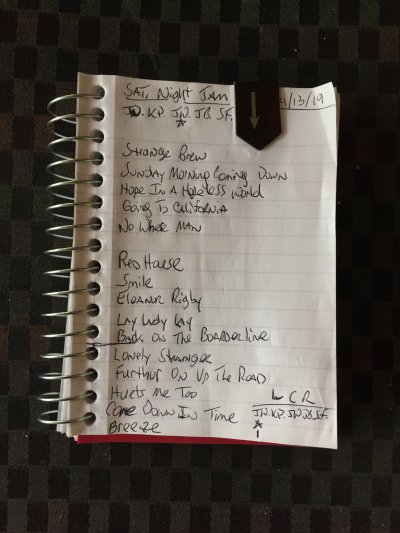 SAT. Night JAM 4/13/19
JW. KP. JW. JB SF.
Strange Brew
Sunday Morning Coming Down
Hope In A Hopeless World
Going To California
No Where MAN
Red House
Smile
Eleanor Rigby
Lay Lady Lay
Back On The Boarderline
Lonely Stranger
Further On Up The Road
Hurts Me Too
L C R
Come Down In Time
JW. KP. JW JB SF.
Breeze